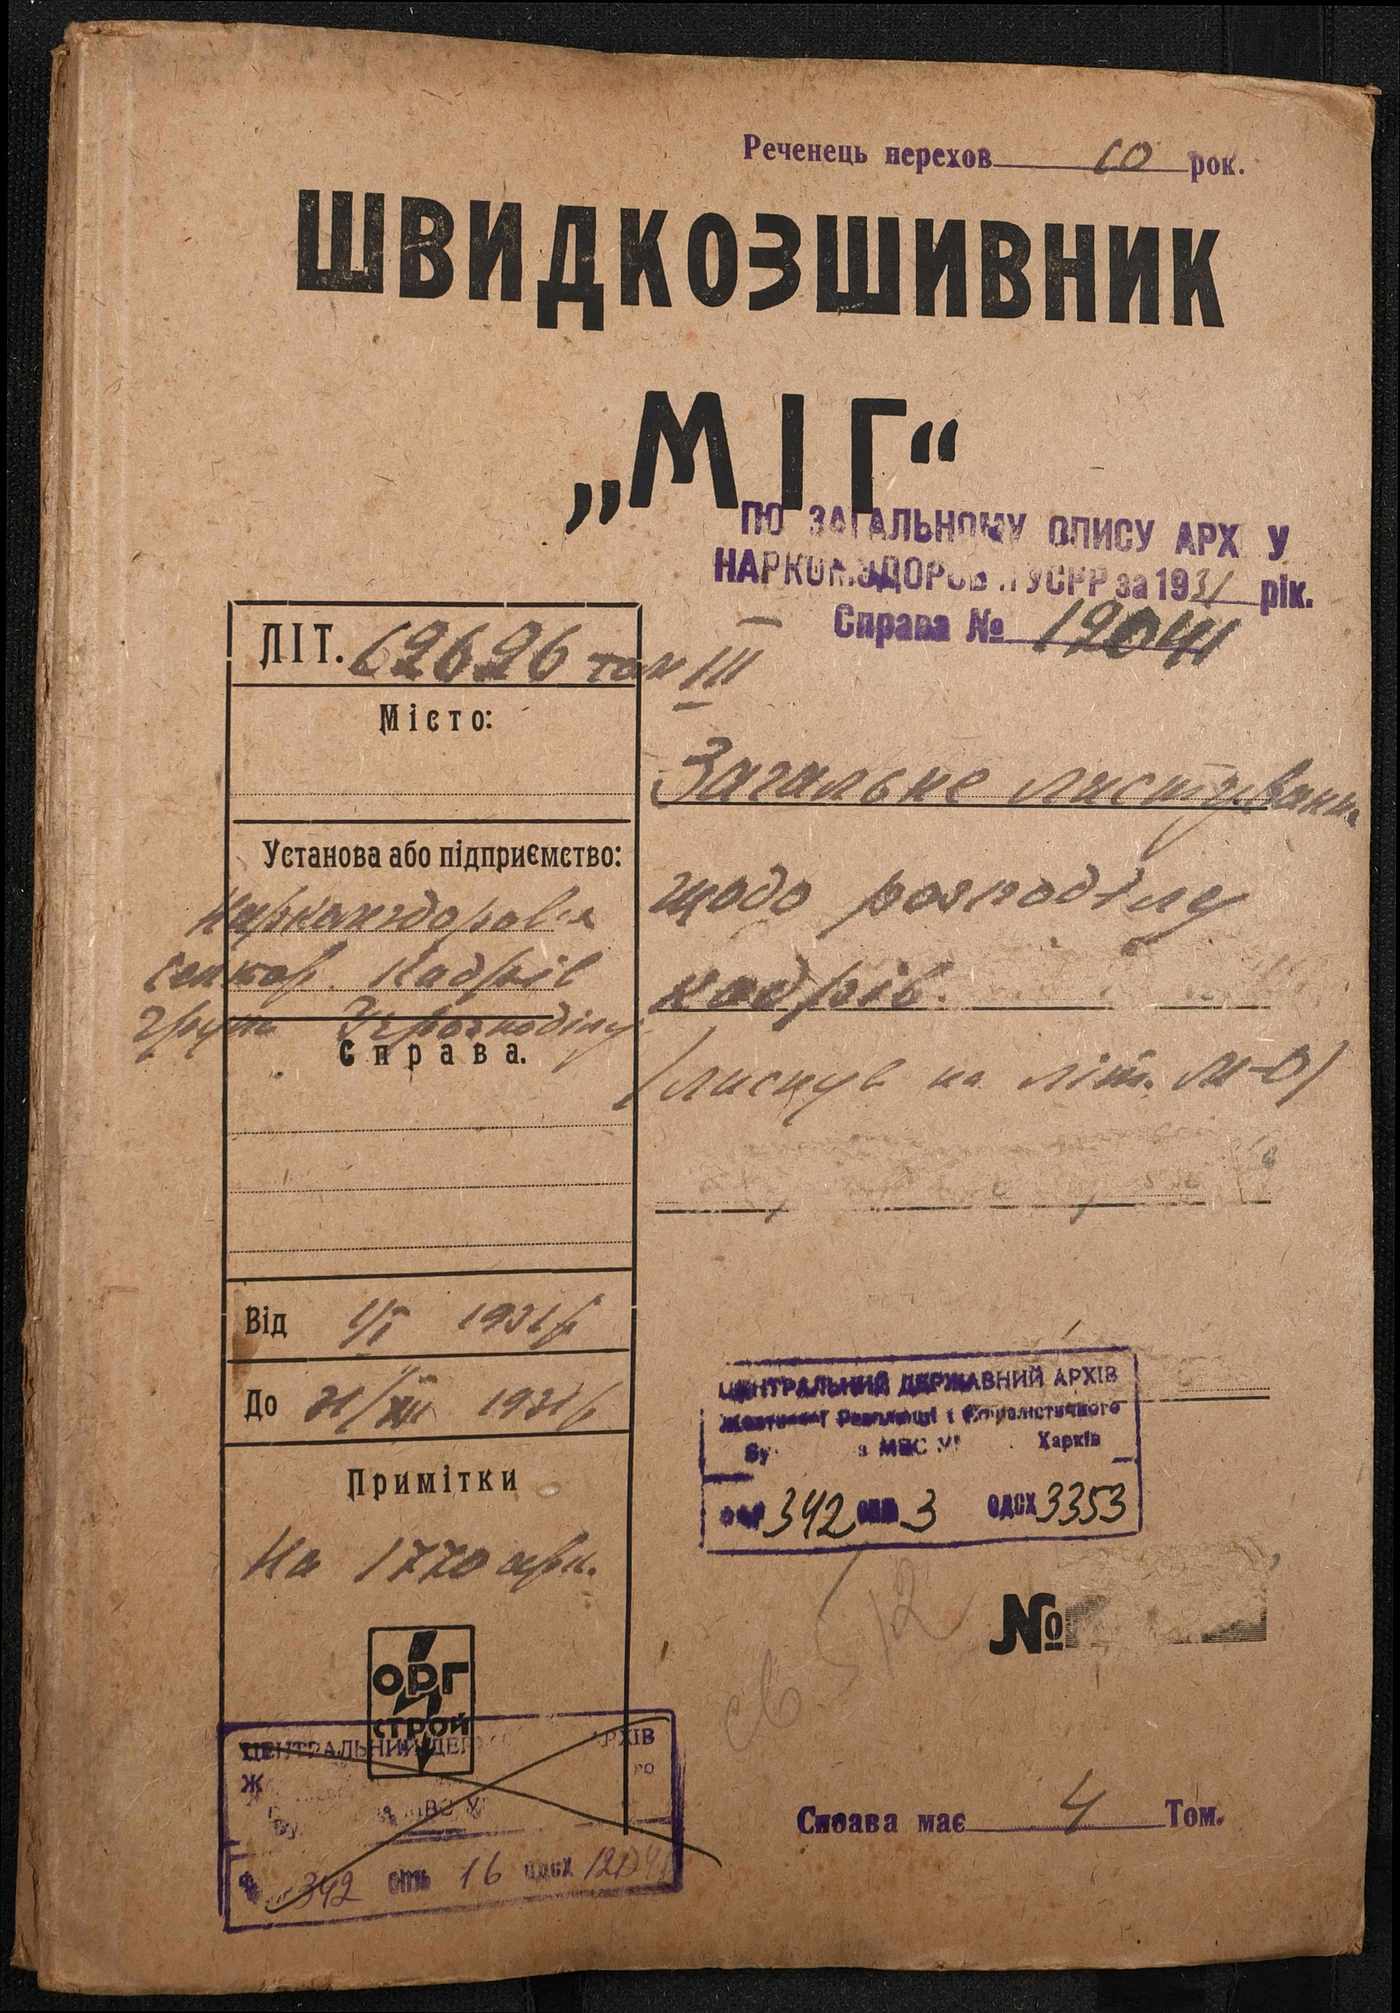 Реченець перехов 10 рок.
ШВИДКОЗШИВНИК
„МІГ“
ПО ЗАГАЛЬНОМУ ОПИСУ АРХ У
НАРКОМЗДОРОВ УСРР за 1931 рік.
Справа № 12041
ЛІТ. 62626 том III
Місто:
Загальне листування
Установа або підприємство:
Наркомздоров'я
сектор Кадрів
група
щодо розподілу
кадрів.
/листув на літ. М-О/
Справа.
Від 1/I 1931 р
До 31/XII 1931 р
Примітки
На 1770 арк.
ОРГ
СТРОЙ
ЦЕНТРАЛЬНИЙ ДЕРЖАВНИЙ АРХІВ
Жовтневої Революції і Соціалістичного
Бу МВС У Харків
342 3 ОДСХ 3353
№
ЦЕНТРАЛЬНИЙ ДЕР АРХІВ
Ж
МВС У
342 опись 16 ОДСХ
Справа має 4 Том.